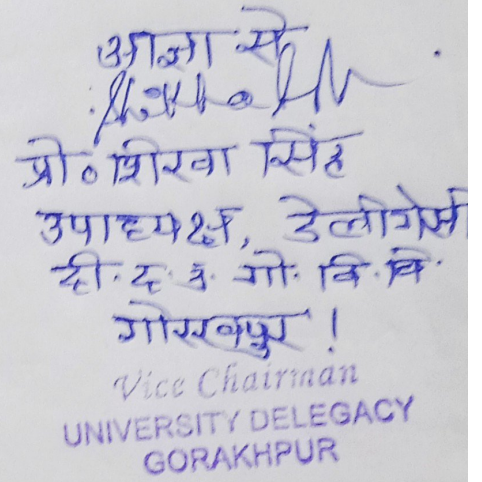 आज्ञा से
प्रो० शिखा सिंह
उपाध्यक्ष, डेलीगेसी
दी. द. उ. गो. वि. वि.
गोरखपुर !
Vice Chairman
UNIVERSITY DELEGACY
GORAKHPUR